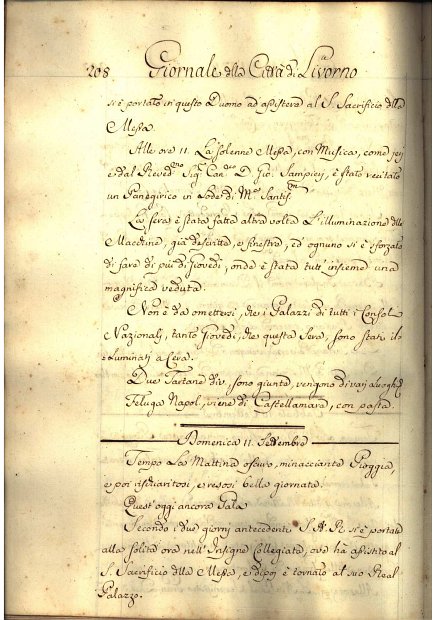 208 Giornale della Città di Livorno
si è portato in questo Duomo ad assistere al S. Sacrificio della
Messa.
Alle ore 11. La solenne Messa, con Musica, come jeri
e dal Revedmo Sigr Candco D. Gio: Sampierj, è stato recitato
un Panegirico in Lode di Ma Santissma
La sera è stata fatta altra volta L'illuminazione delle
Macchine, già descritte, e finestre, ed ognuno si è sforzato
di fare di più di Giovedì, onde è stata tutt' insieme una
magnifica veduta.
Non è da omettersi, che i Palazzi di tutti i Consoli
Nazionalj, tanto Giovedì, che questa Sera, sono stati il-
luminatj a Cera.
Due Tartane div, sono giunte, vengono di varj Luoghj
Feluga Napol, viene di Castellamare, con pasta.
Domenica 11. Settembre
Tempo La Mattina oscuro, minacciante Pioggia,
e poi rischiaritosi, e resosi bella giornata.
Quest'oggi ancora Gala
Secondo i due giornj antecedenti S. A. R. si è portato
alla solita ora nell'Insigne Collegiata, ove hà assistito al
S. Sacrificio della Messa, e dipoj è tornato al suo Real
Palazzo.